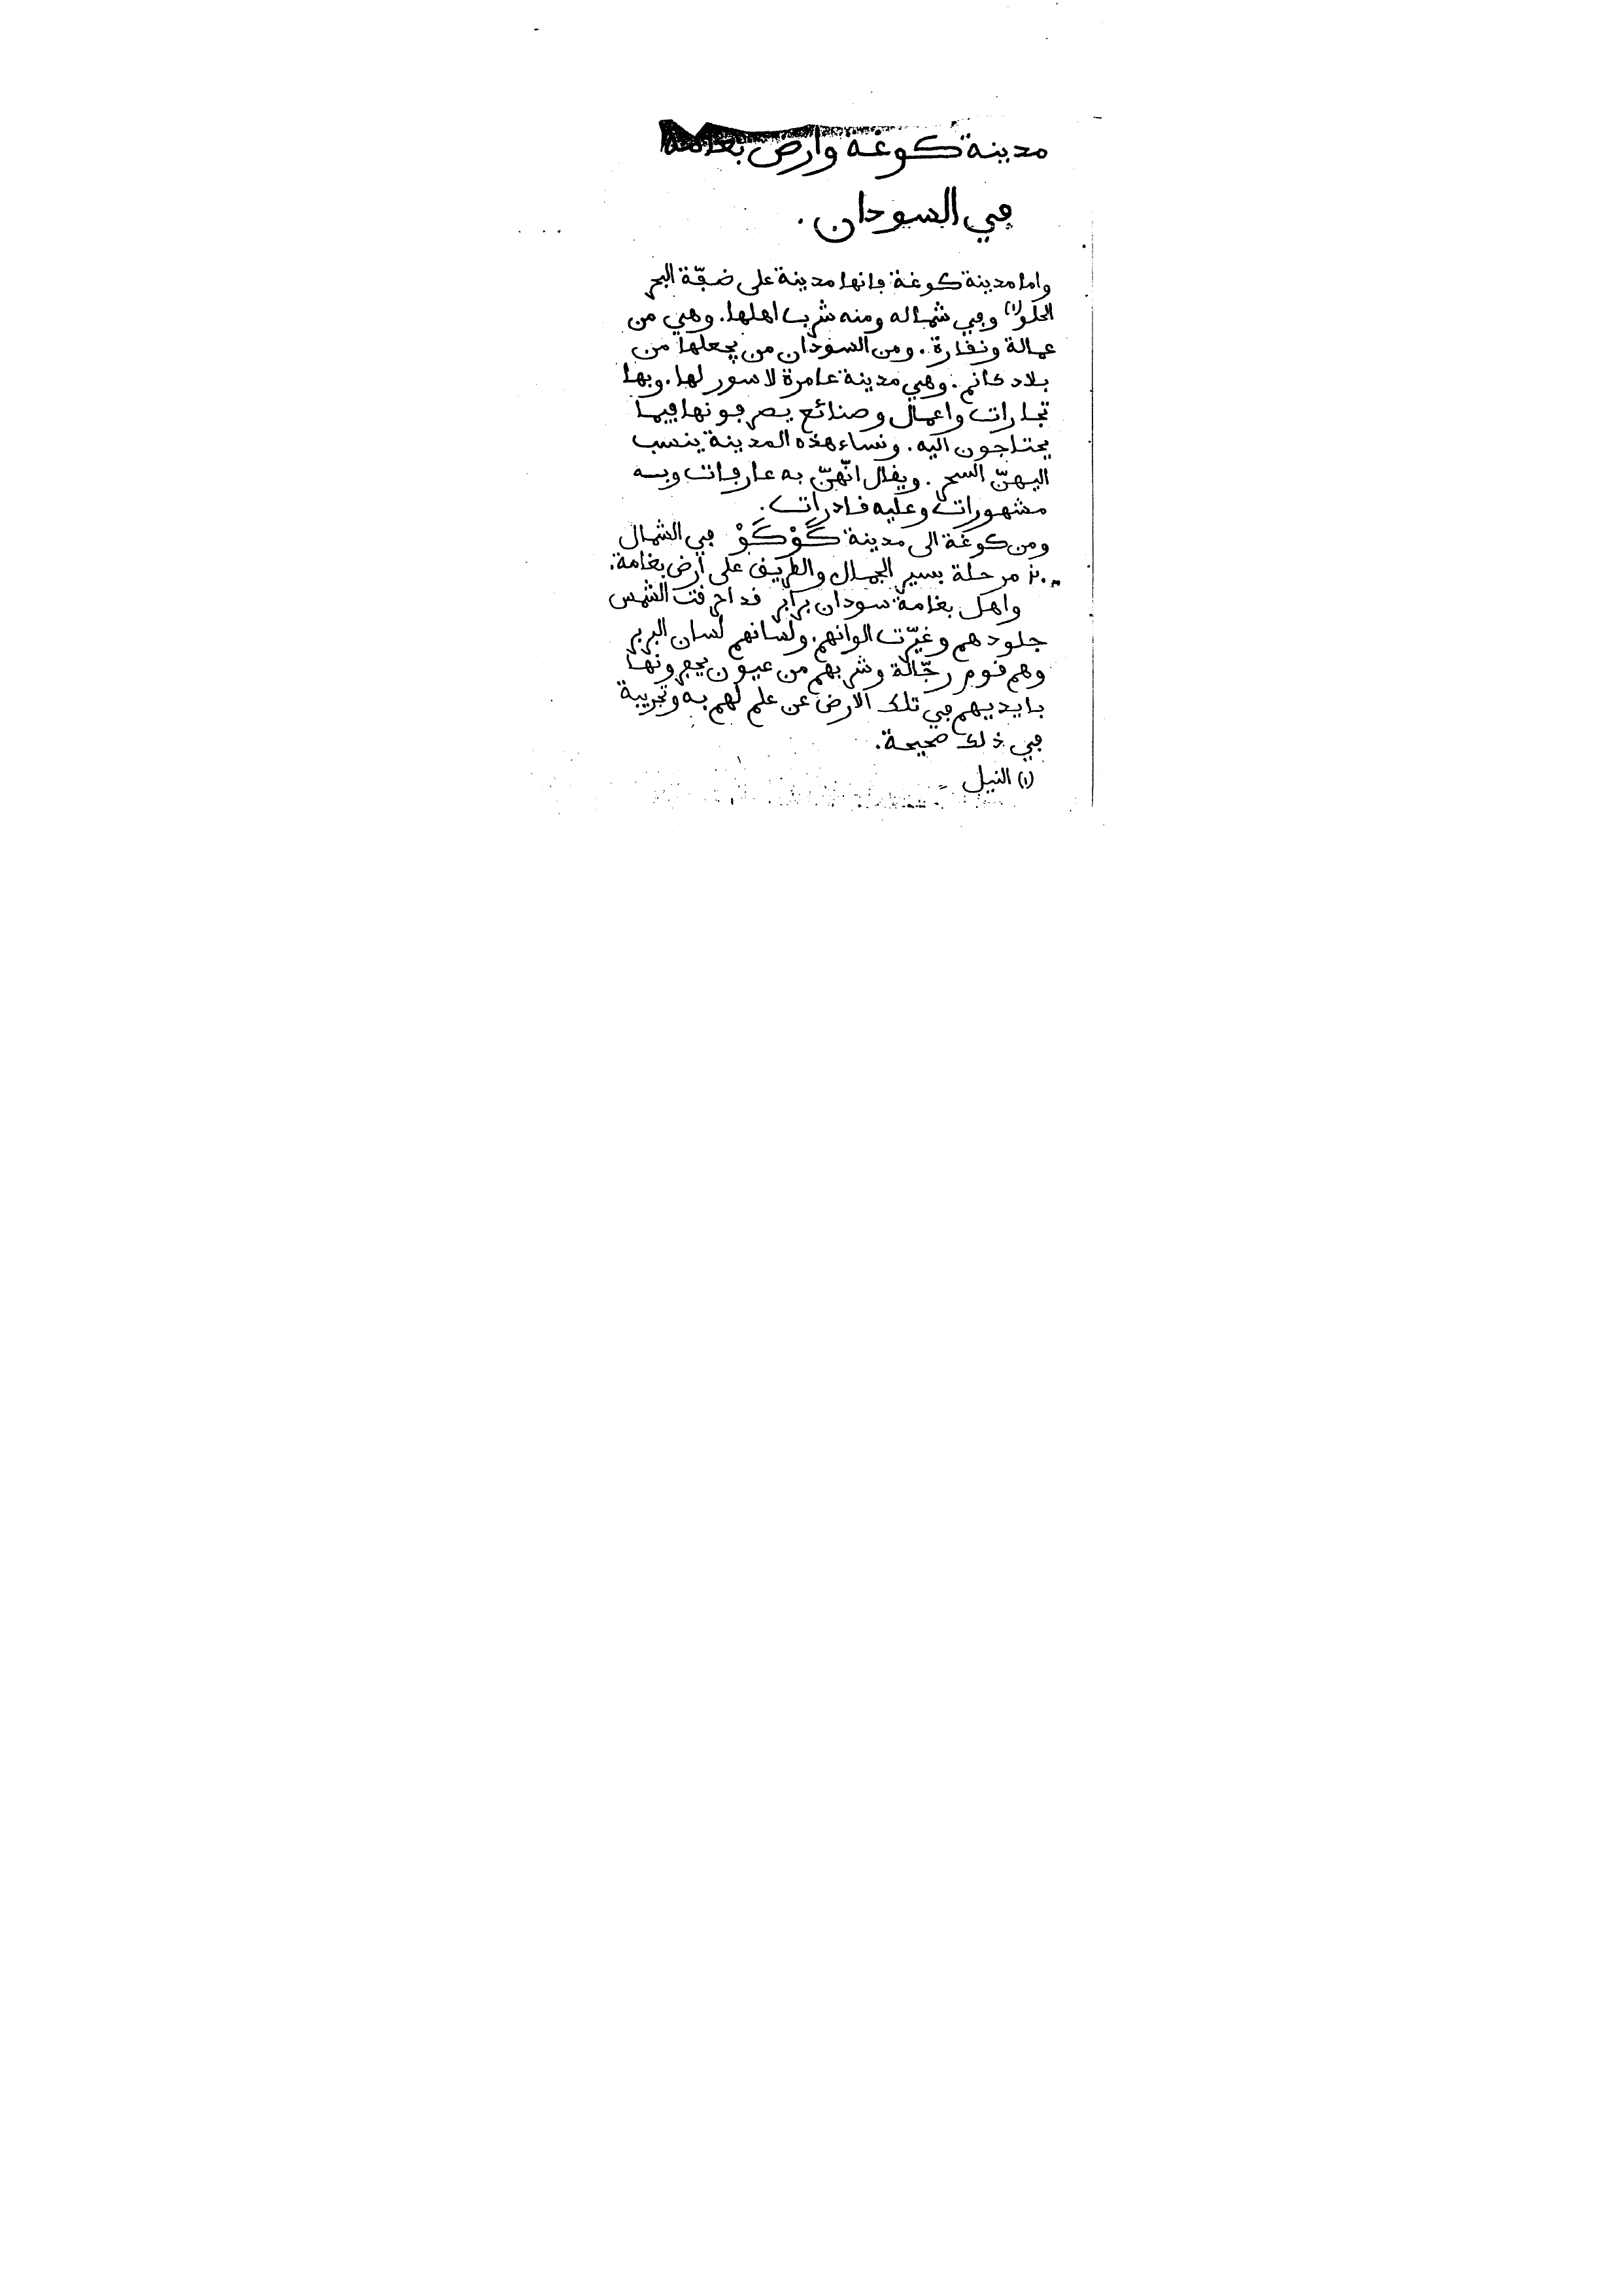 مدينة كوغة وارض بغامة
في السودان.
واما مدينة كوغة فانها مدينة على ضفّة البحر
الحلو(١) وفي شماله ومنه شرب اهلها. وهي من
عمالة ونقارة. ومن السودان من يجعلها من
بلاد كانم. وهي مدينة عامرة لا سور لها. وبها
تجارات واعمال وصنائع يصرفونها فيما
يحتاجون اليه. ونساء هذه المدينة ينسب
اليهنّ السحر. ويقال انّهنّ به عارفات وبه
مشهورات وعليه قادرات.
ومن كوغة الى مدينة كَوْكَوْ في الشمال
مرحلة بسير الجمال والطريق على ارض بغامة.
واهل بغامة سودان برابر قد احرقت الشمس
جلودهم وغيّرت الوانهم. ولسانهم لسان البربر
وهم قوم رجّالة وشربهم من عيون يحفرونها
بايديهم في تلك الارض عن علم لهم به وتجربة
في ذلك صحيحة.
(١) النيل